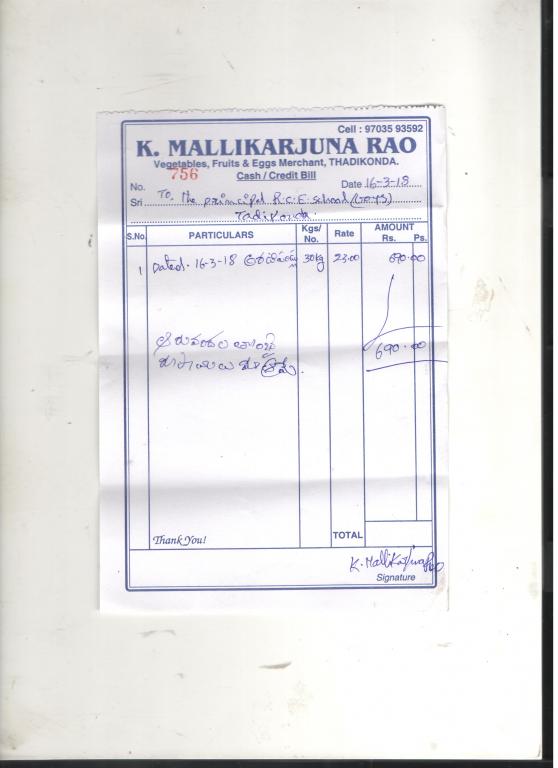 Cell : 97035 93592
K. MALLIKARJUNA RAO
Vegetables, Fruits & Eggs Merchant, THADIKONDA.
756 Cash / Credit Bill
No. Date 16-3-18
Sri To, the principal R.C.E. school (Boys)
Tadikonda.
S.No. PARTICULARS Kgs/No. Rate AMOUNT Rs. Ps.
1 Dated. 16-3-18 30kg 23.00 690.00
690.00
రూపాయలు మాత్రమే.
Thank You! TOTAL
K. Mallikarjuna Rao
Signature